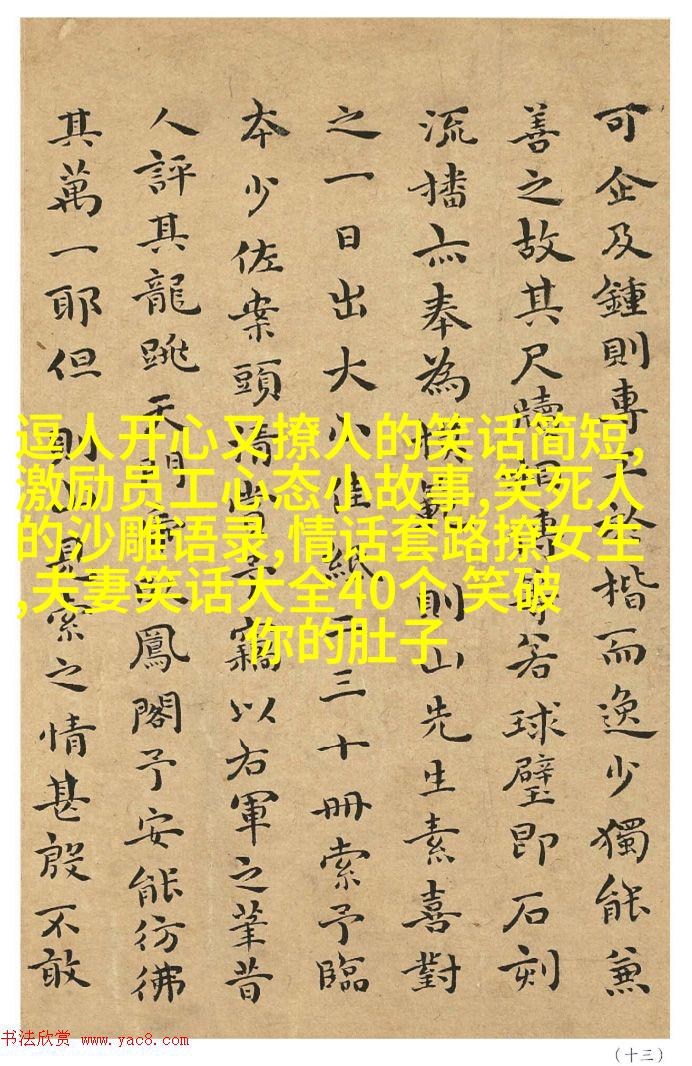 可企及鍾則專工於楷而逸少獨能兼
善之故其尺牘傳若球璧即石刻
流播亦奉為模則山先生素喜對
之一日出大小佳紙三十冊索予臨
本少佐案頭清賞予竊以右軍之筆昔
人評其龍跳天門虎臥鳳閣予安能彷彿
其萬一耶但則見索之情甚殷不敢
逗人开心又撩人的笑话简短,
激励员工心态小故事,笑死人
的沙雕语录,情话套路撩女生
,夫妻笑话大全40个,笑破
你的肚子
书法欣赏 www.yac8.com
(十三)